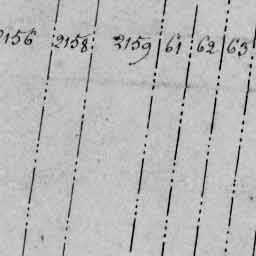 2156 2158 2159 61 62 63